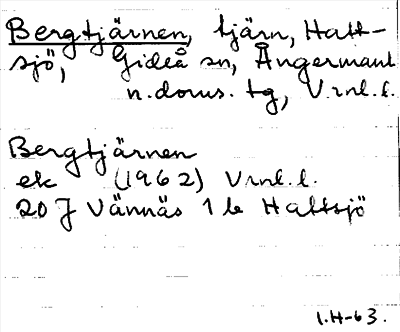 Bergtjärnen, tjärn, Hatt-
sjö, Gideå sn, Ångermanl
n.doms. tg, Vrnl.l.
Bergtjärnen
ek (1962) Vrnl.l.
20 J Vännäs 1 b Hattsjö
1.H-63.